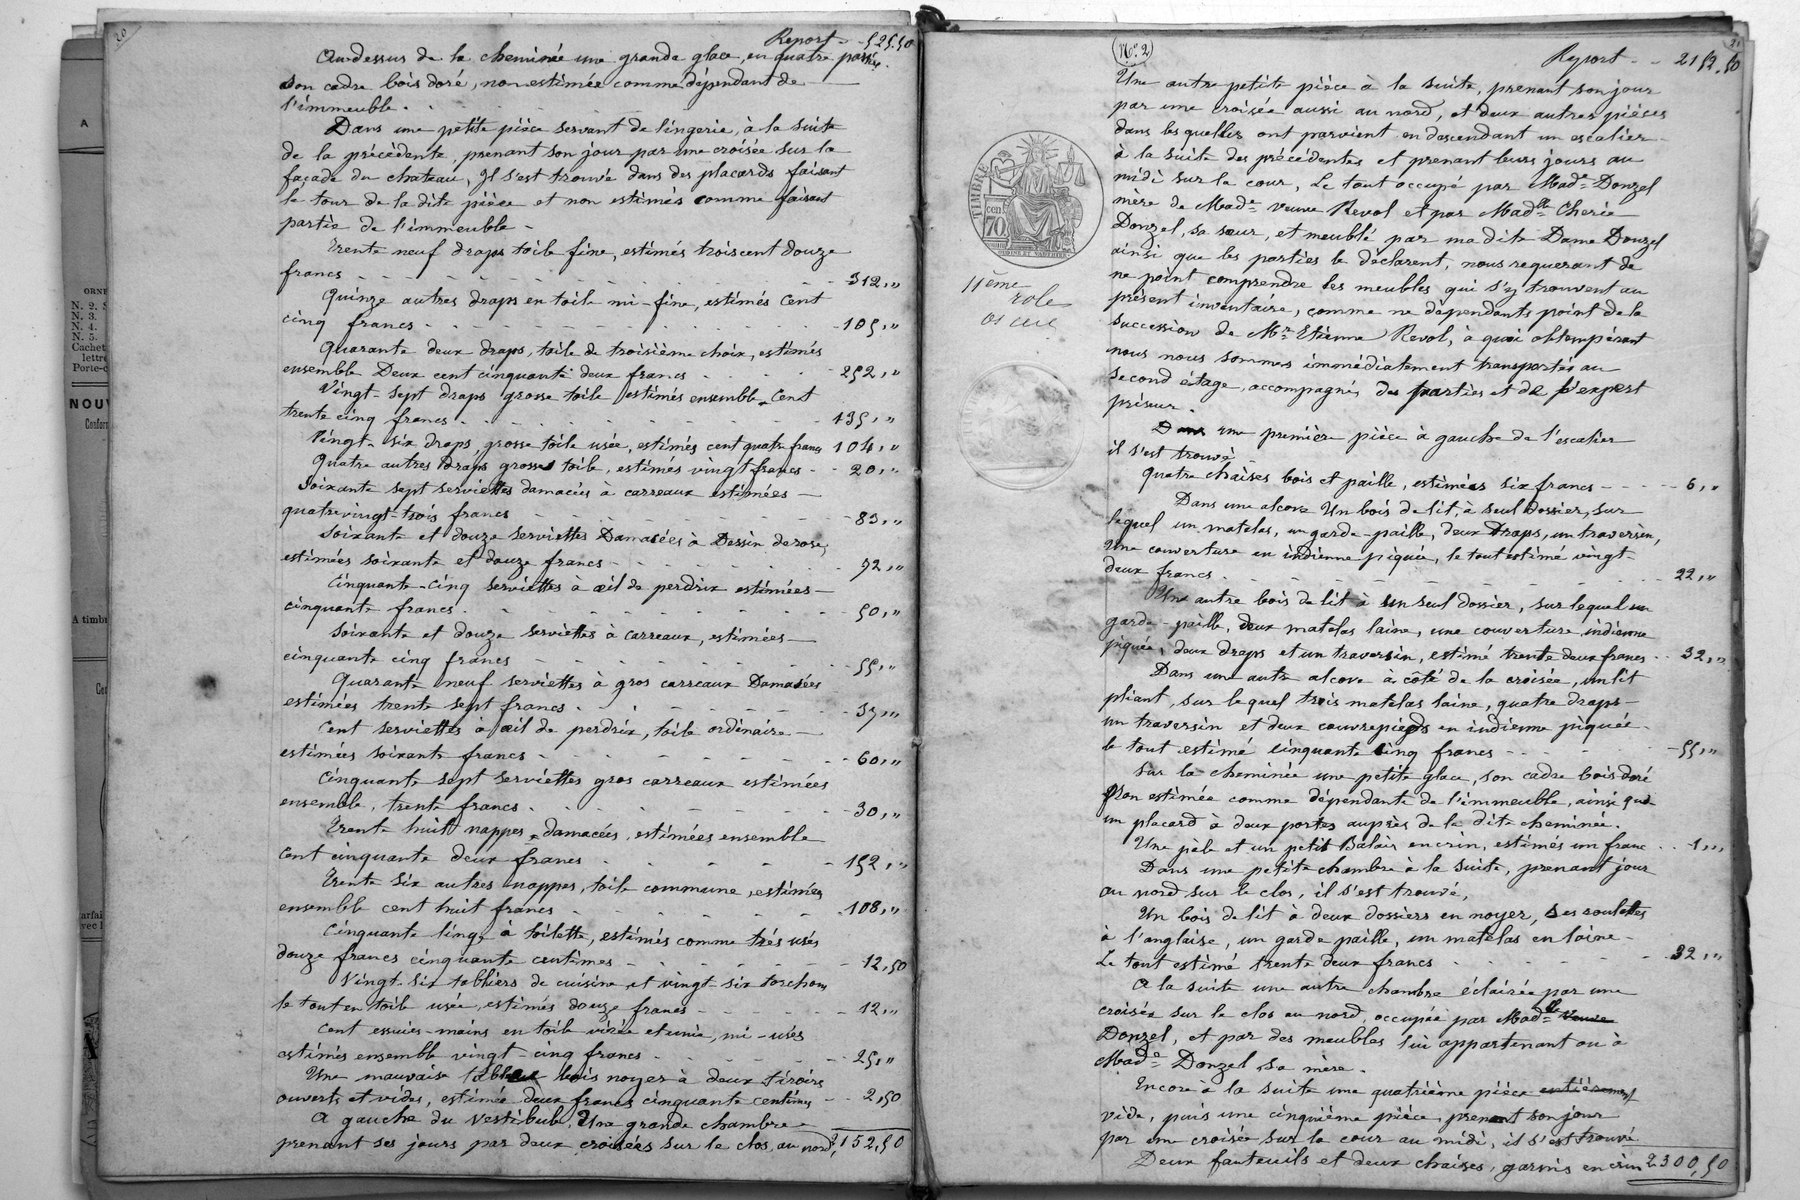 20
Report - - 525.50
Au dessus de la cheminée une grande glace, en quatre parties.
Son cadre bois doré, non estimée comme dépendant de
l'immeuble.
Dans une petite pièce servant de lingerie, à la suite
de la précédente, prenant son jour par une croisée sur la
façade du chateau, Il s'est trouvé dans des placards faisant
le tour de la dite pièce et non estimés comme faisant
partie de l'immeuble -
Trente neuf draps toile fine, estimés trois cent douze
francs - - - 312,"
Quinze autres draps en toile mi-fine, estimés Cent
cinq francs - - - 105,"
Quarante deux draps, toile de troisième choix, estimés
ensemble Deux cent cinquante deux francs - - - 252,"
Vingt-sept draps grosse toile estimés ensemble Cent
trente cinq francs - - - 135,"
Vingt-six draps, grosse toile usée, estimés cent quatre francs 104,"
Quatre autres draps grosse toile, estimés vingt francs - - 20,"
Soixante sept serviettes damacées à carreaux estimées -
quatrevingt-trois francs - - - 83,"
Soixante et douze serviettes Damacées à Dessin de rose,
estimées soixante et douze francs - - - 72,"
Cinquante-cinq serviettes à œil de perdrix estimées -
cinquante francs. - - - 50,"
Soixante et douze serviettes à carreaux, estimées -
cinquante cinq francs - - - 55,"
Quarante neuf serviettes à gros carreaux Damacées
estimées trente sept francs. - - - 37,"
Cent serviettes à œil de perdrix, toile ordinaire -
estimées soixante francs - - - 60,"
Cinquante sept serviettes gros carreaux estimées
ensemble, trente francs. - - - 30,"
Trente huit nappes damacées, estimées ensemble
Cent cinquante deux francs - - - 152,"
Trente six autres nappes, toile commune, estimées
ensemble cent huit francs - - - 108,"
Cinquante linge à toilette, estimés comme très usés
douze francs cinquante centimes - - - 12,50
Vingt-six tabliers de cuisine et vingt six torchons
le tout en toile usée, estimés douze francs - - - 12,"
Cent essuies-mains en toile usée et unie, mi-usés
estimés ensemble vingt-cinq francs - - - 25,"
Une mauvaise table bois noyer à deux tiroirs
ouverts et vides, estimée deux francs cinquante centimes - - 2,50
A gauche du vestibule, Une grande chambre
prenant ses jours par deux croisées sur le clos, au nord, 2152,50
(No. 2)
21
Report - - 2152.50
Une autre petite pièce à la suite, prenant son jour
par une croisée aussi au nord, et deux autres pièces
dans lesquelles ont parvient en descendant un escalier
à la suite des précédentes et prenant leurs jours au
midi sur la cour, Le tout occupé par Made Donzel
mère de Made veuve Revol et par Madlle Cherie
Donzel, sa sœur, et meublé par ma dite Dame Donzel
ainsi que les parties le déclarent, nous requerant de
ne point comprendre les meubles qui s'y trouvent au
présent inventaire, comme ne dépendants point de la
succession de Mr Etienne Revol, à quoi obtempérant
nous nous sommes immédiatement transportés au
second étage, accompagnés des parties et de l'expert
priseur.
TIMBRE
70 cen
11ème
role
Dans une première pièce à gauche de l'escalier
il s'est trouvé
Quatre chaises bois et paille, estimées six francs - - - 6,"
Dans une alcove Un bois de lit, à seul dossier, sur
lequel un matelas, un garde-paille, deux Draps, un traversin,
Une couverture en indienne piquée, le tout estimé vingt-
deux francs. - - - 22,"
Un autre bois de lit à un seul dossier, sur lequel un
garde-paille, deux matelas laine, une couverture indienne
piquée, deux draps et un traversin, estimé trente deux francs - - 32,"
Dans une autre alcove à côté de la croisée, un lit
pliant, sur lequel trois matelas laine, quatre draps -
un traversin et deux couvrepieds en indienne piquée -
le tout estimé cinquante cinq francs - - - 55,"
Sur la cheminée une petite glace, son cadre bois doré
Non estimée comme dépendante de l'immeuble, ainsi que
un placard à deux portes auprès de la dite cheminée.
Une pèle et un petit Balais en crin, estimés un franc - - 1,"
Dans une petite chambre à la suite, prenant jour
au nord sur le clos, il s'est trouvé,
Un bois de lit à deux dossiers en noyer, ses roulettes
à l'anglaise, un garde paille, un matelas en laine -
Le tout estimé trente deux francs - - - 32,"
A la suite une autre chambre éclairée par une
croisée sur le clos au nord, occupée par Madlle veuve
Donzel, et par des meubles lui appartenant ou à
Made Donzel sa mère.
Encore à la suite une quatrième pièce entièrement
vide, puis une cinquième pièce, prenant son jour
par une croisée sur la cour au midi, il s'est trouvé
Deux fauteuils et deux chaises, garnis en crin 2300,50
A
ORNE
N. 2. S
N. 3.
N. 4.
N. 5.
Cachet
lettre
Porte-c
NOUV
Conform
A timbr
Cet
arfai
vec l